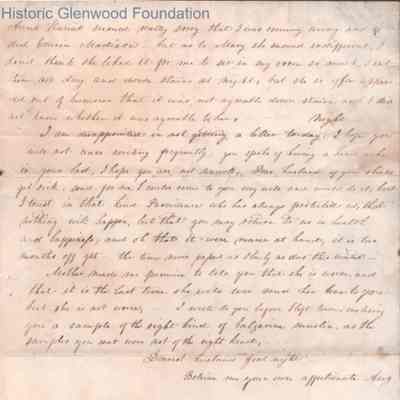 Historic Glenwood Foundation
Aunt Harriet seemed really sorry that I was coming away and so
did Cousin Madison but as to Mary she seemed indifferent, I
dont think she liked it for me to sit in my room so much, I sat
down stairs at night, but she so often appeared
out of humour that it was not agreeable down stairs and I did
not know whether it was agreeable to her. Night
I am disappointed in not getting a letter to day, I hope you
will not cease writing frequently, you speak of having a
in your last, I hope you are not unwell, Dear husband if you should
get sick, send for me I would come to you my self and would do it, but
I trust in that kind Providence who has always protected us, that
nothing will happen, but that you may return to us in health
and happiness, and oh that it were nearer at hand, it is two
months off yet the time never passed as slowly as does this winter
Mother made me promise to tell you that she is worse, and
that it is the last time she will ever send her love to you
but she is not worse, I wrote to you before I left home enclosing
you a sample of the right kind of bulgarine muslin, as the
samples you sent were not of the right kind,
Dearest husband Good night
Believe me your own affectionate Amy